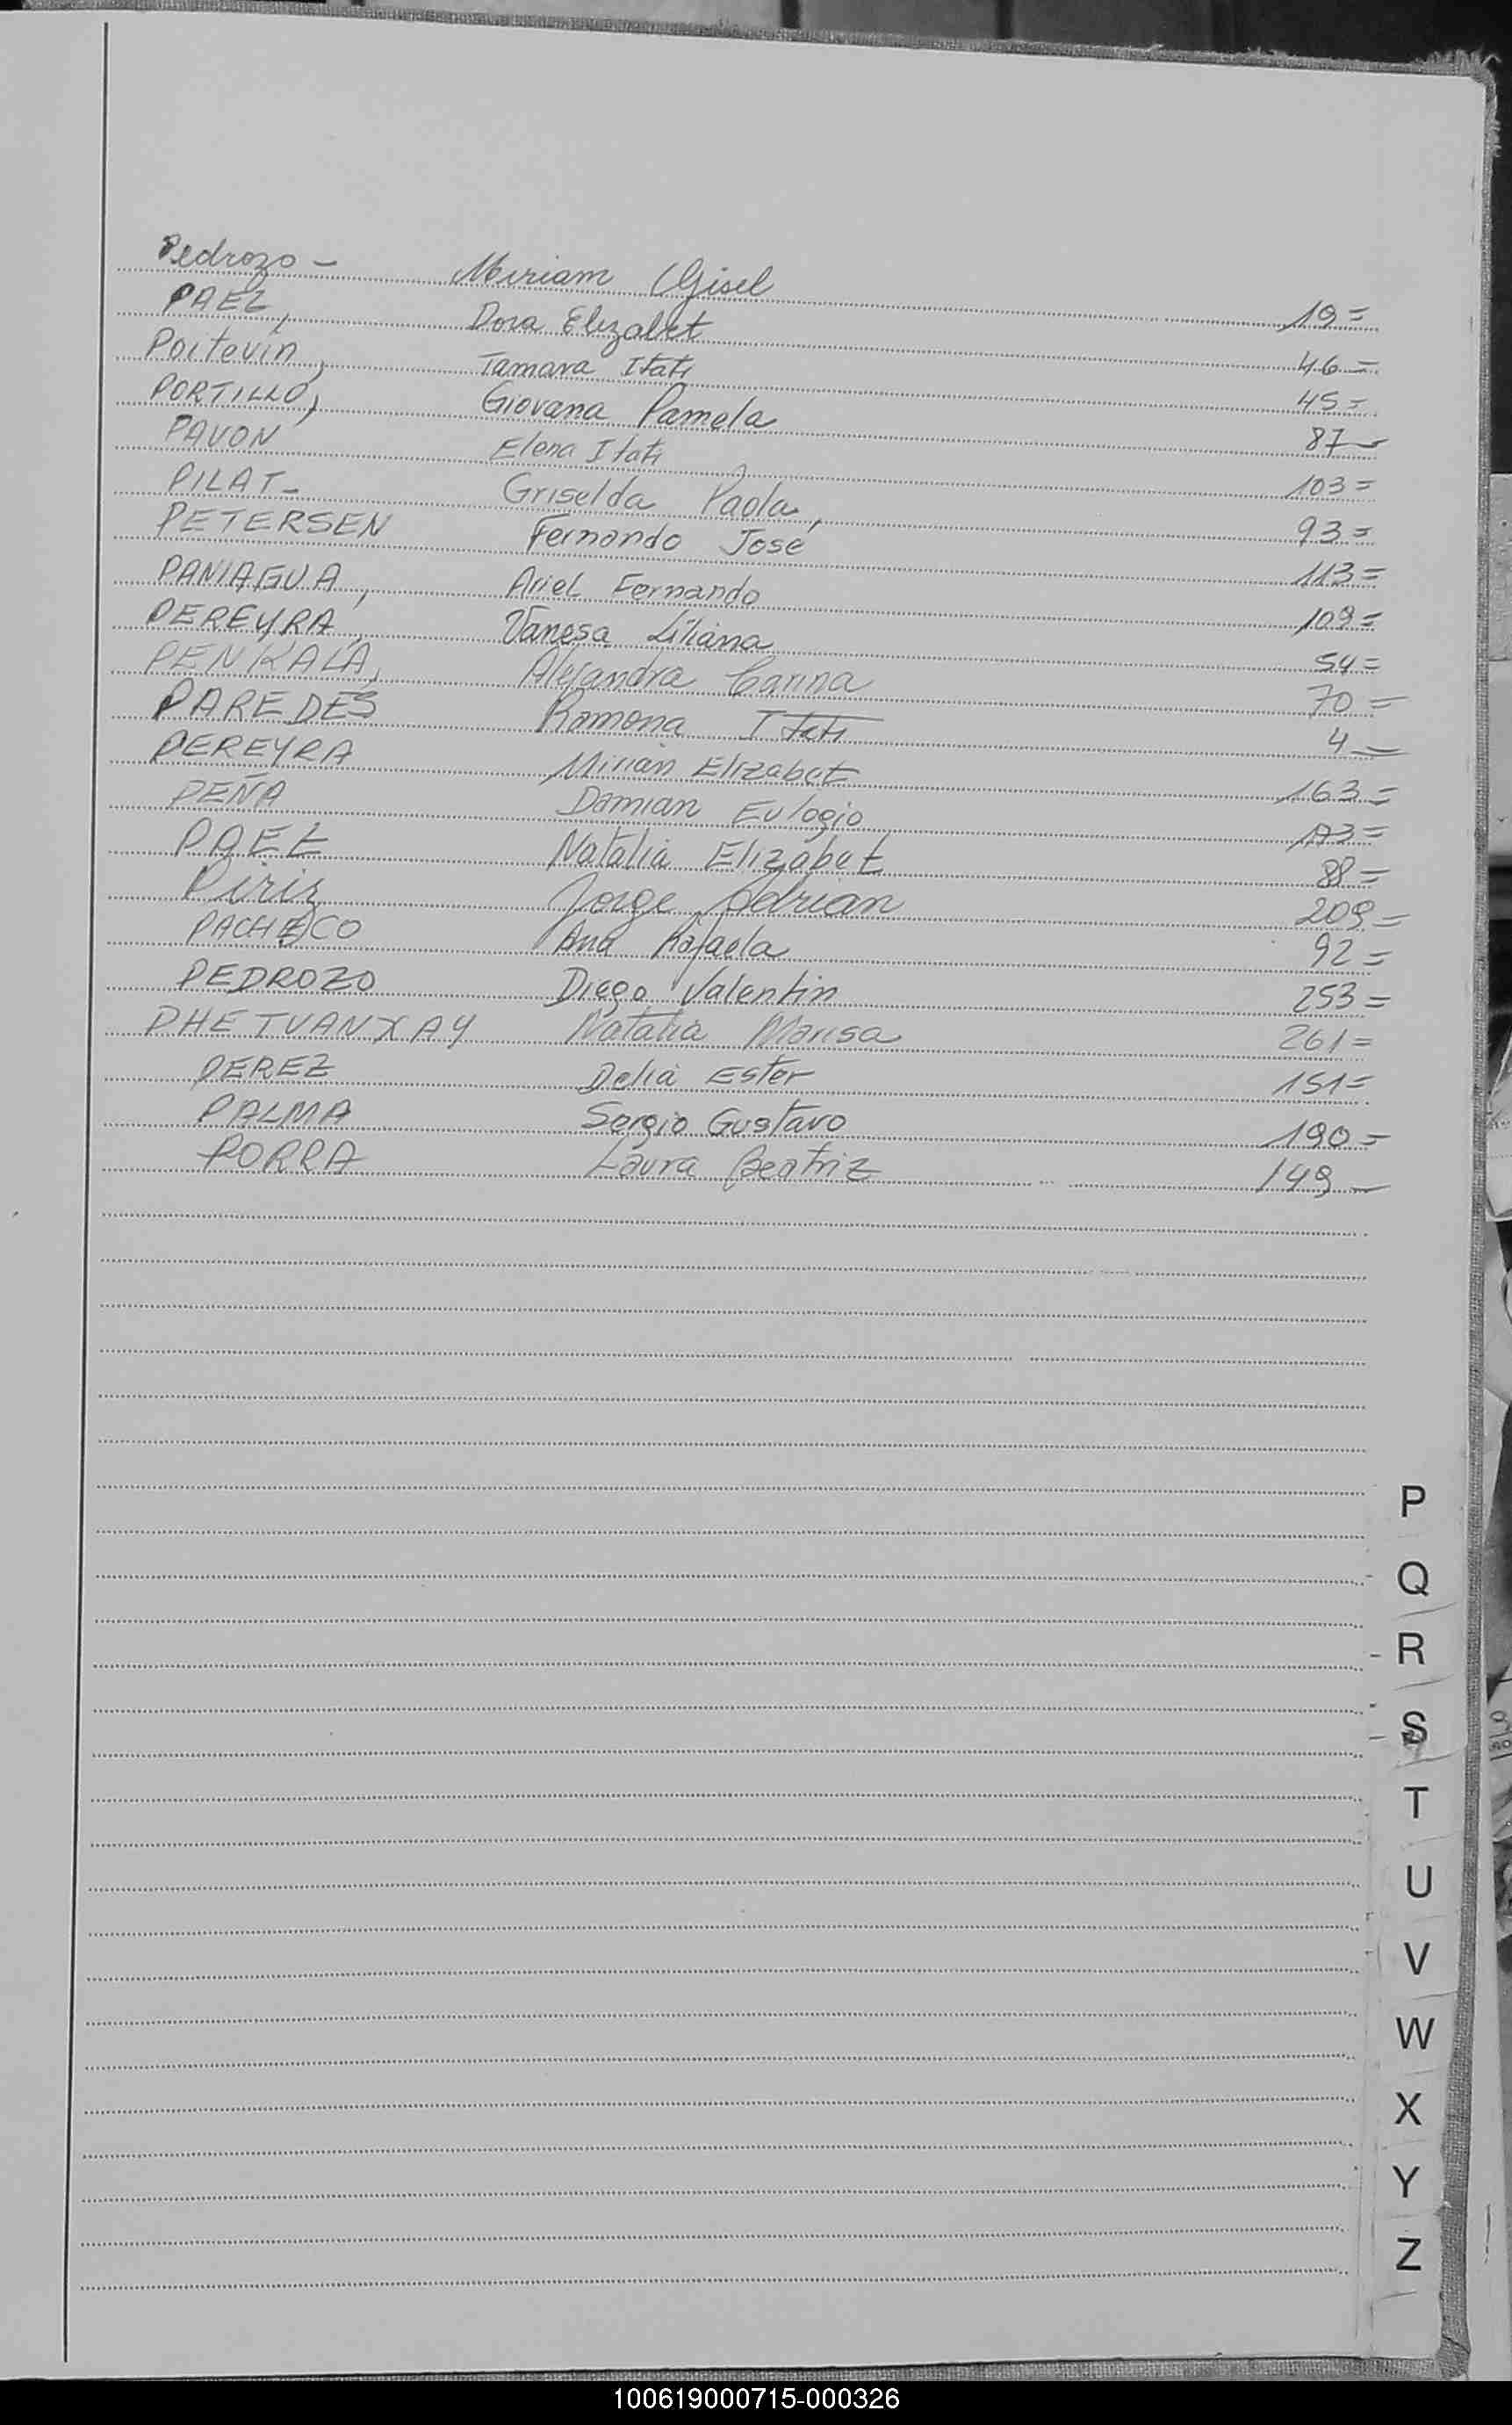 Pedrozo - Miriam Gisel 19=
PAEZ, Dora Elizabet 46=
Poitevin, Tamara Itati 45=
PORTILLO, Giovana Pamela 87-
PAVON Elena Itati 103=
PILAT- Griselda Paola, 93=
PETERSEN Fernando José 113=
PANIAGUA, Ariel Fernando 109=
PEREYRA, Vanesa Liliana 54=
PENKALA, Alejandra Carina 70=
PAREDES Ramona Itati 4=
PEREYRA Mirian Elizabet 163=
PEÑA Damian Eulogio
PAEZ Natalia Elizabet 88=
Piriz Jorge Adrian 209=
PACHECO Ana Rafaela 92=
PEDROZO Diego Valentin 253=
PHETVANXAY Natalia Marisa 261=
PEREZ Delia Ester 151=
PALMA Sergio Gustavo 190=
PORRA Laura Beatriz 149-
P
Q
R
S
T
U
V
W
X
Y
Z
100619000715-000326